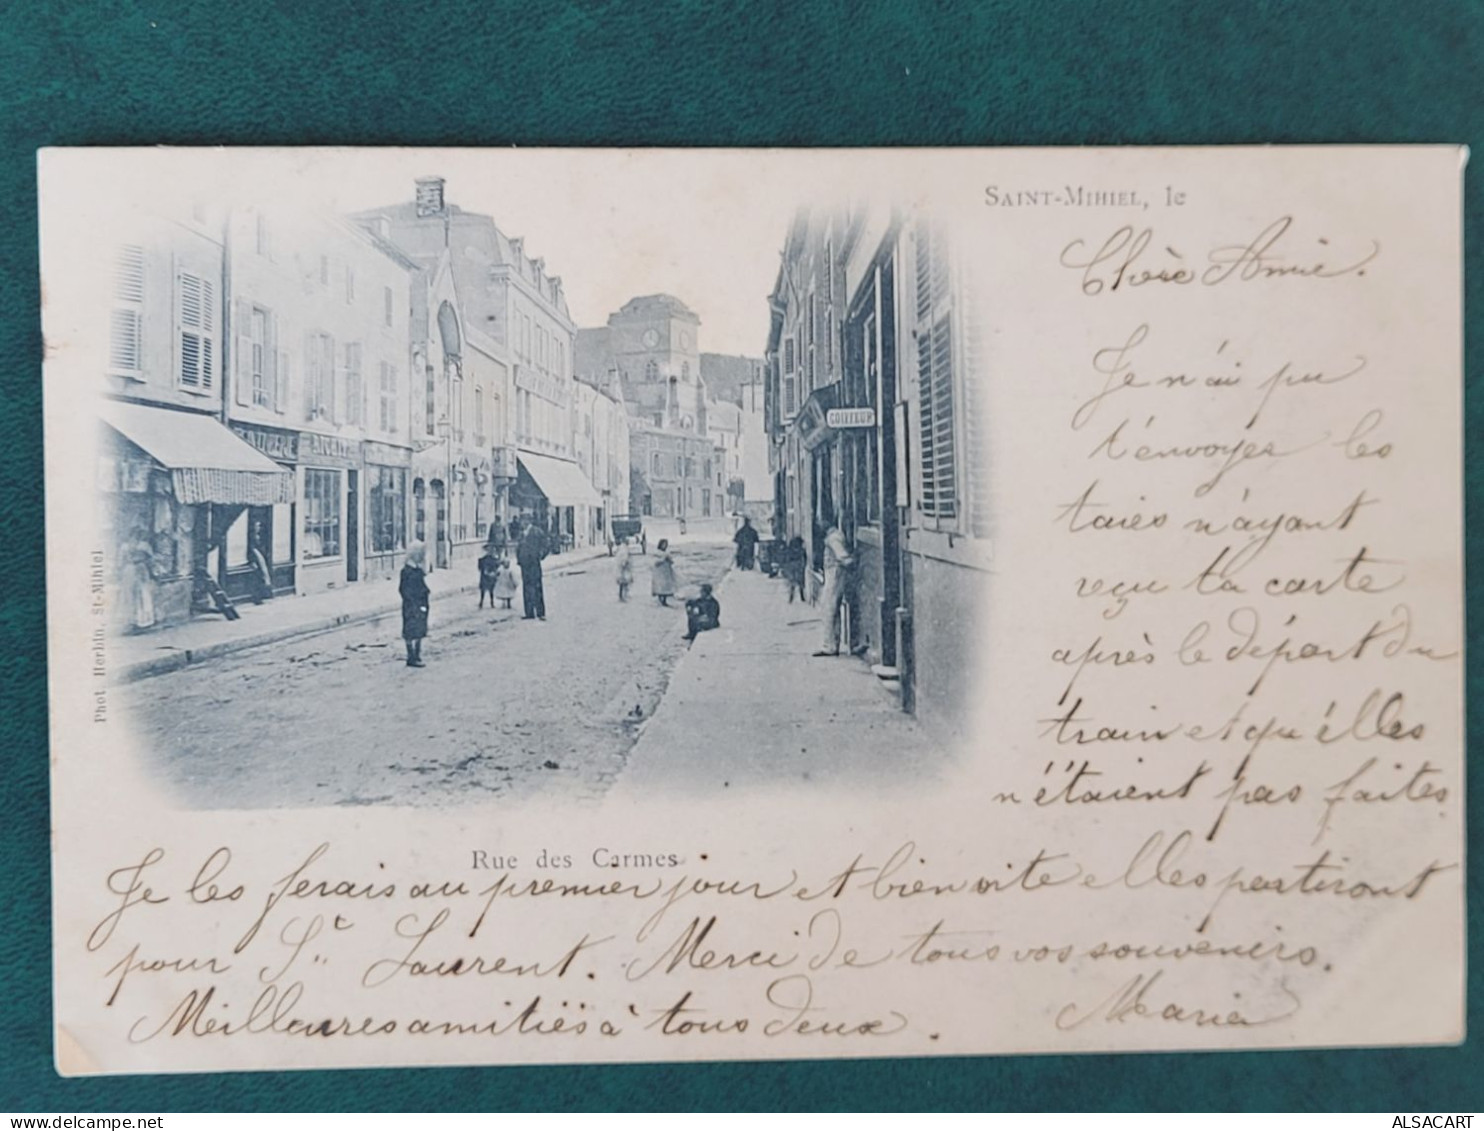 SAINT-MIHIEL, le
Chère Amie.
Je n'ai pu
t'envoyer les
taies n'ayant
reçu ta carte
après le départ du
train et qu'elles
n'étaient pas faites.
COIFFEUR
Phot. Herbin, St-Mihiel
Rue des Carmes
Je les ferais au premier jour et bien vite elles partiront
pour St Laurent. Merci de tous vos souvenirs.
Meilleures amitiés à tous deux.
Maria
ALSACART